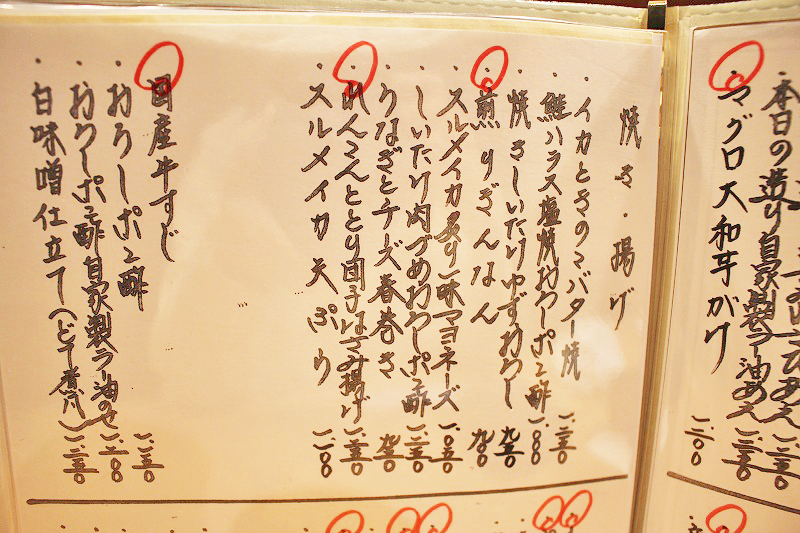 本日の造り自家製ラー油あえ 一、二五〇
マグロ大和芋がけ 一、二〇〇
焼き・揚げ
・イカときのこバター焼 一、二五〇
・鮭ハラス塩焼おろしポン酢 一、一〇〇
・焼きしいたけゆずおろし 九五〇
・煎りぎんなん 九〇〇
・スルメイカ炙り一味マヨネーズ 一、〇五〇
・しいたけ肉づめおろしポン酢 一、二五〇
・うなぎとチーズ春巻き 九五〇
・れんこんととり団子はさみ揚げ 一、二五〇
・スルメイカ天ぷら 一、一〇〇
国産牛すじ
・おろしポン酢 一、一五〇
・おろしポン酢自家製ラー油のせ 一、二〇〇
・白味噌仕立て(どて煮風) 一、二五〇